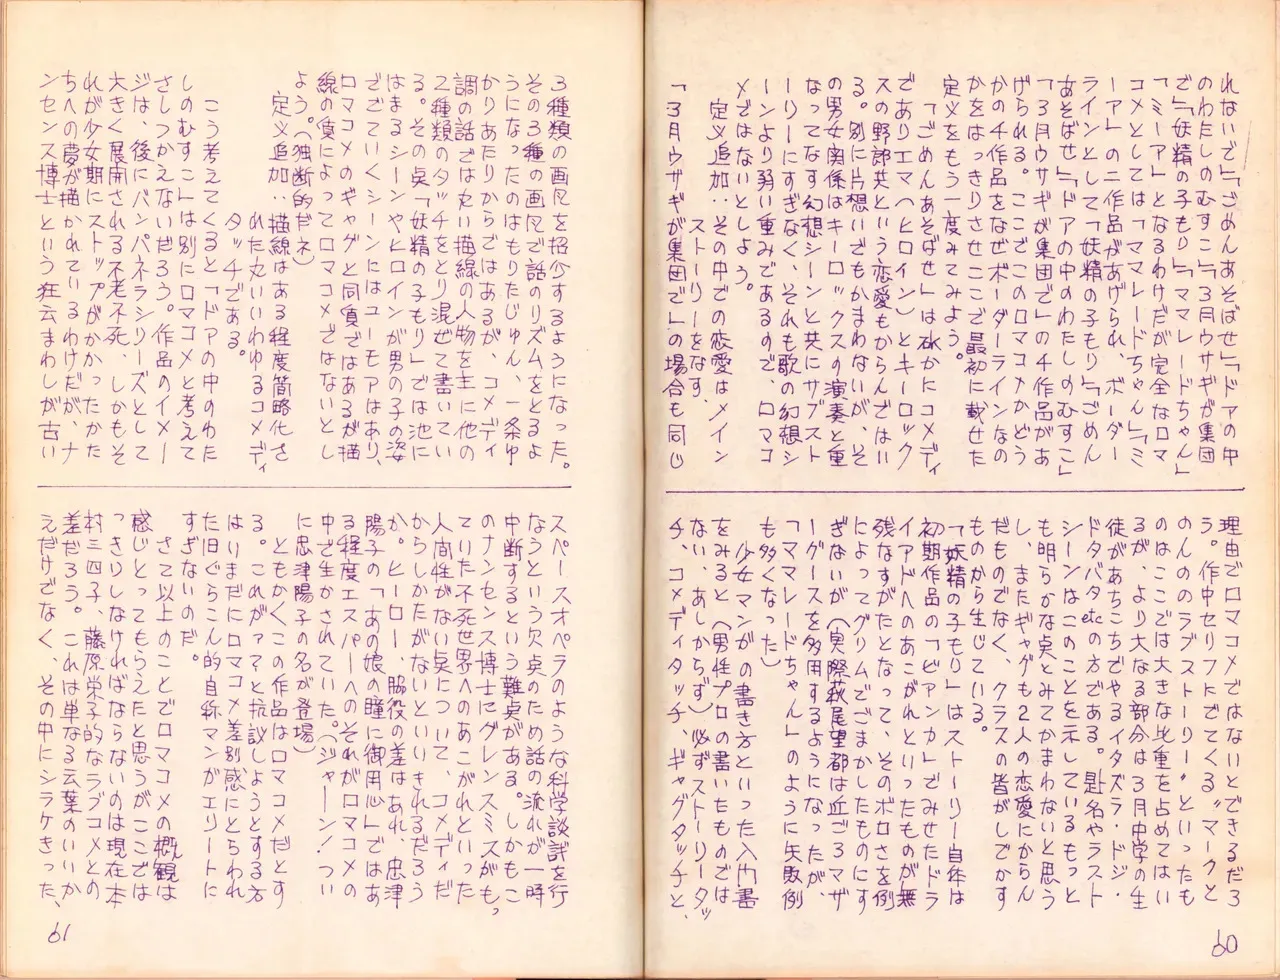 れないで」「ごめんあそばせ」「ドアの中
のわたしのむすこ」「3月ウサギが集団
で」「妖精の子もり」「ママレードちゃん」
「ミーア」となるわけだが完全なロマ
コメとしては「ママレードちゃん」「ミ
ーア」の二作品があげられ、ボーダー
ラインとして「妖精の子もり」「ごめん
あそばせ」「ドアの中のわたしのむすこ」
「3月ウサギが集団で」の4作品があ
げられる。ここでこのロマコメかどう
かの4作品をなぜボーダーラインなの
かをはっきりさせとこで最初に載せた
定義をもう一度みてみよう。
「ごめんあそばせ」は確かにコメディ
でありエマ(ヒロイン)とキーロック
スの野郎共という恋愛もからんではい
る。別に片想いでもかまわないが、そ
の男女関係はキーロックスの演奏と重
なってなす幻想シーンと共にサブスト
ーリーにすぎなく、それも歌の幻想シ
ーンより弱い重みであるので、ロマコ
メではないとしよう。
定義追加‥その中での恋愛はメイン
ストーリーをなす。
「3月ウサギが集団で」の場合も同じ
理由でロマコメではないとできるだろ
う。作中セリフにでてくる〝マークと
のんののラブストーリー〟といったも
のはここでは大きな比重を占めてはい
るが、より大なる部分は3月中学の生
徒があちこちでやるイタズラ・ドジ・
ドタバタetcの方である。題名やラスト
シーンはこのことを示しているもっと
も明らかな点とみてかまわないと思う
し、またギャグも2人の恋愛にからん
だものでなく、クラスの皆がしでかす
ものから生じている。
「妖精の子もり」はストーリー自体は
初期作品の「ビアンカ」でみせたドラ
イアドへのあこがれといったものが無
残なすがたとなって、そのボロさを例
によってグリムでごまかしたものにす
ぎないが(実際萩尾望都は近ごろマザ
ーグースを多用するようになったが、
「ママレードちゃん」のように失敗例
も多くなった)
少女マンガの書き方といった入門書
をみると(男性プロの書いたものでは
ない、あしからず)必ずストーリータッ
チ、コメディタッチ、ギャグタッチと、
60
3種類の画風を招介するようになった。
その3種の画風で話のリズムをとるよ
うになったのはもりたじゅん、一条ゆ
かりあたりからではあるが、コメディ
調の話では丸い描線の人物を主に他の
2種類のタッチをとり混ぜて書いてい
る。その点「妖精の子もり」では池に
はまるシーンやヒロインが男の子の姿
ででていくシーンにはユーモアはあり、
ロマコメのギャグと同質ではあるが描
線の質によってロマコメではないとし
よう。(独断的だネ)
定義追加‥描線はある程度簡略化さ
れた丸いいわゆるコメディ
タッチである。
こう考えてくると「ドアの中のわた
しのむすこ」は別にロマコメと考えて
さしつかえないだろう。作品のイメー
ジは、後にバンパネラシリーズとして
大きく展開される不老不死、しかもそ
れが少女期にストップがかかったかた
ちへの夢が描かれているわけだが、ナ
ンセンス博士という狂言まわしが古い
スペースオペラのような科学談議を行
なうという欠点のため話の流れが一時
中断するという難点がある。しかもこ
のナンセンス博士にグレンスミスがもっ
ていた不死世界へのあこがれといった
人間性がない点について、コメディだ
からしかたがないといいきれるだろう
か。ヒーロー、脇役の差はあれ、忠津
陽子の「あの娘の瞳に御用心」ではあ
る程度エスパーへのそれがロマコメの
中で生かされていた。(ジャーン! つい
に忠津陽子の名が登場)
ともかくこの作品はロマコメだとす
る。これがァァと抗議しようとする方
はいまだにロマコメ差別感にとらわれ
た旧ぐらこん的自称マンがエリートに
すぎないのだ。
さて以上のことでロマコメの概観は
感じとってもらえたと思うがここでは
っきりしなければならないのは現在本
村三四子、藤原栄子的なラブコメとの
差だろう。これは単なる言葉のいいか
えだけでなく、その中にシラケきった、
61